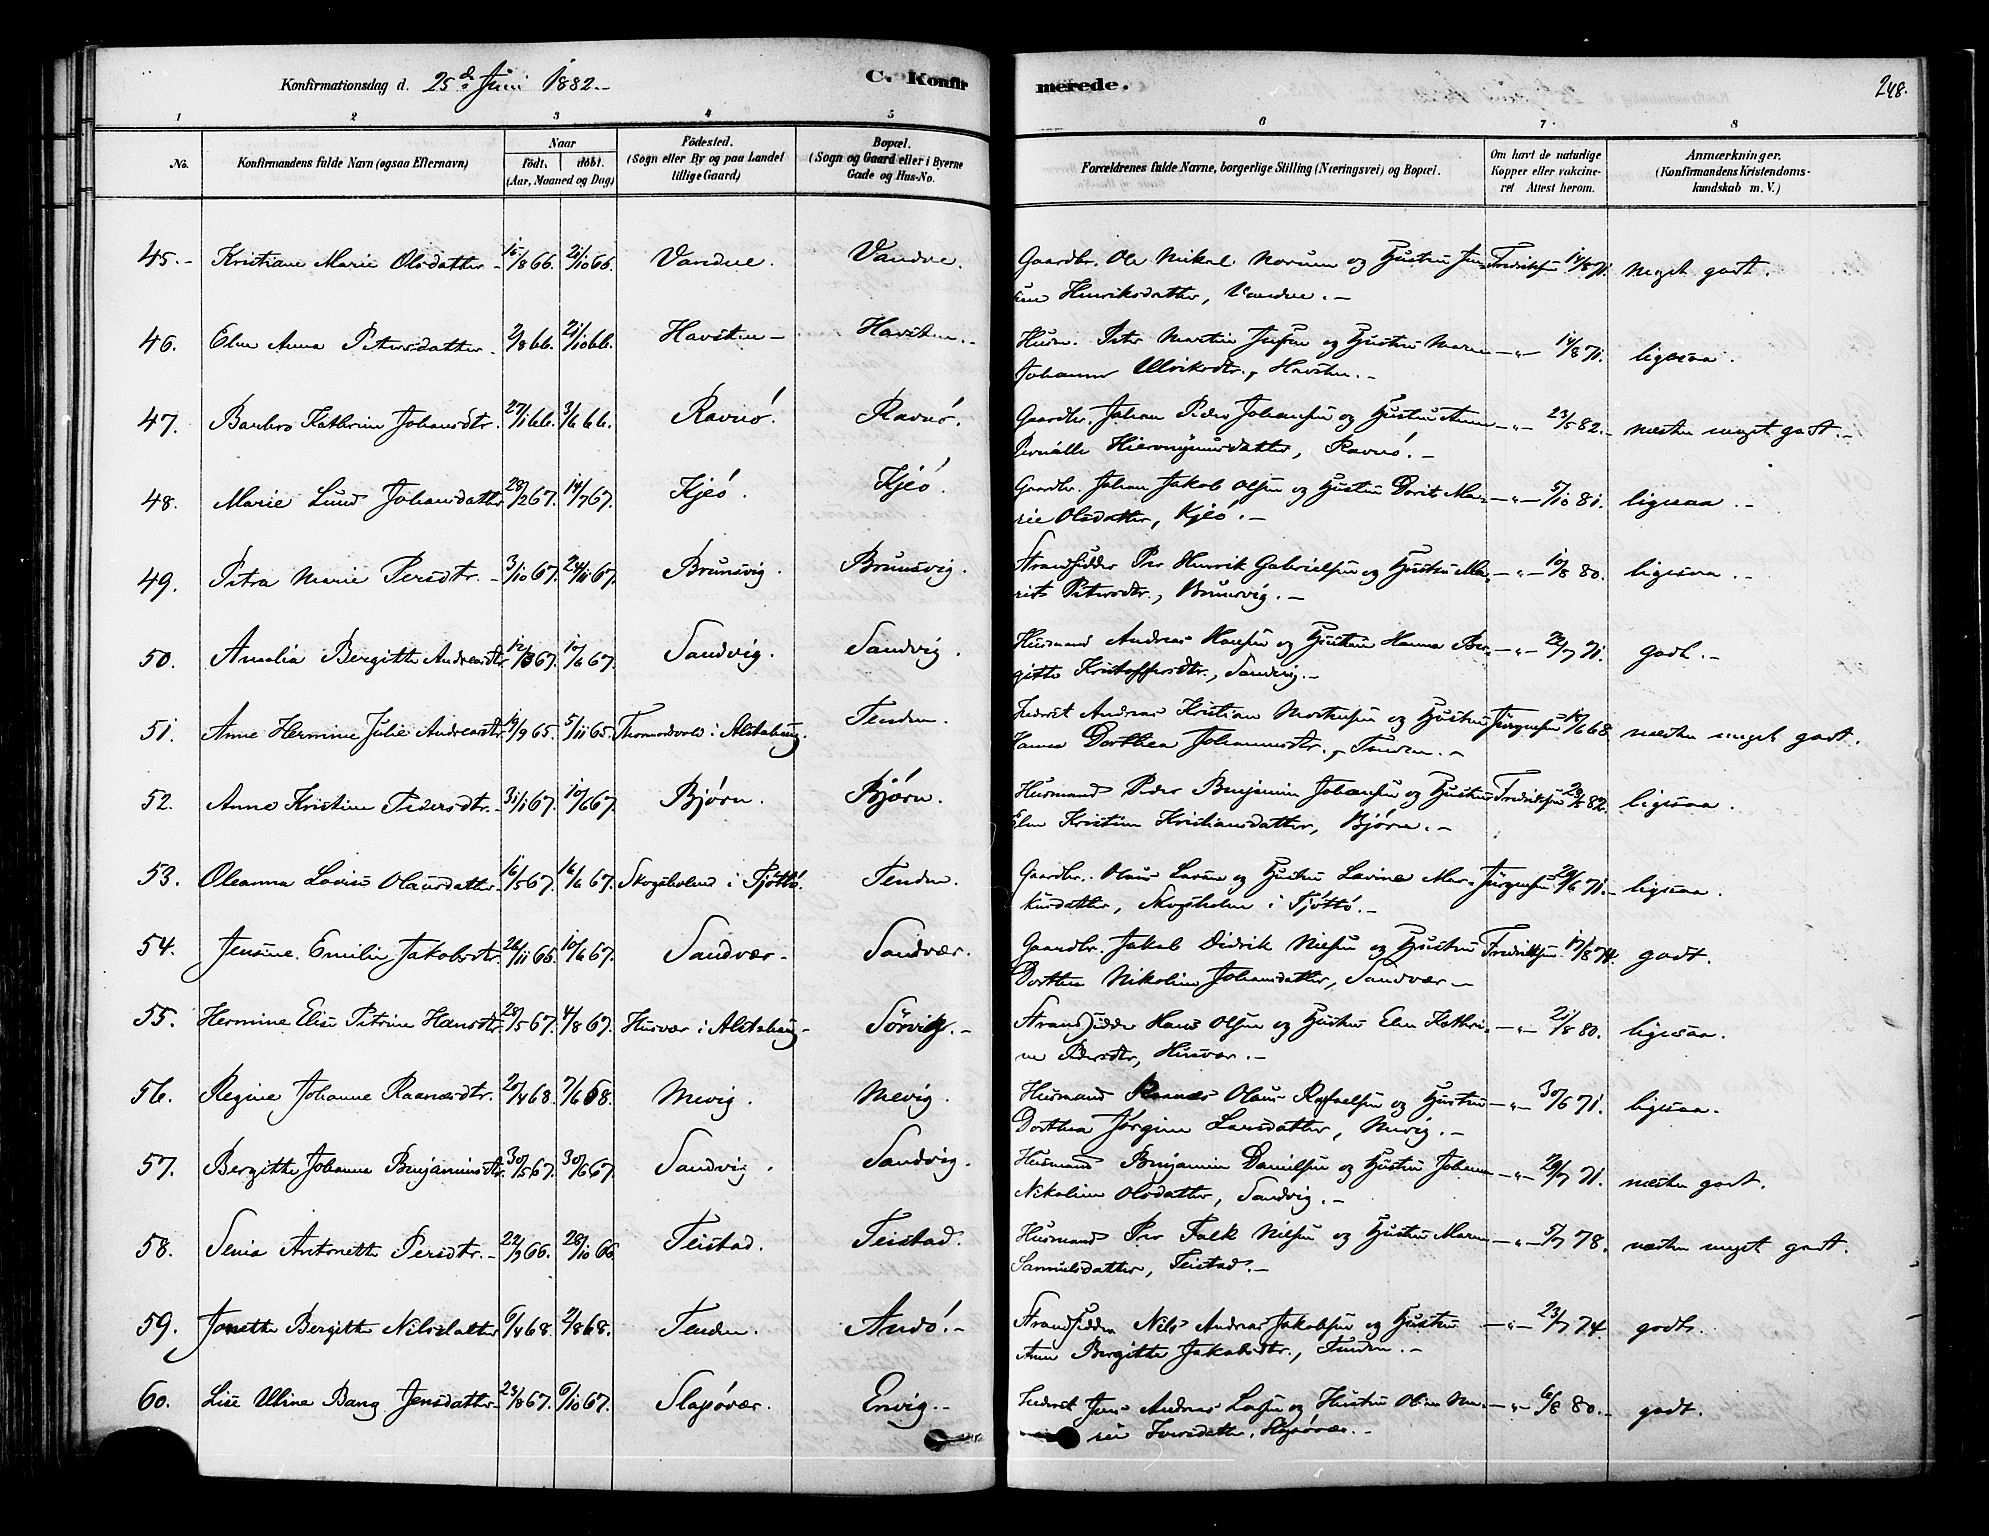 Konfirmationsdag d. 25de Juni 1882.-
C. Konfirmerede.
248.
1 2 3 4 5 6 7 8
No. Konfirmandens fulde Navn (ogsaa Efternavn) Naar født, døbt. (Aar, Maaned og Dag) Fødested. (Sogn eller By og paa Landet tillige Gaard) Bopæl. (Sogn og Gaard eller i Byerne Gade og Hus-No. Forældrenes fulde Navne, borgerlige Stilling (Næringsvei) og Bopæl. Om havt de naturlige Kopper eller vakcineret Attest herom. Anmærkninger. (Konfirmandens Kristendomskundskab m. V.)
45.- Kristiane Marie Olsdatter 15/8 66. 21/10 66. Vandve. Vandve. Gaardbr. Ole Mikal Norum og Hustru Jensine Henriksdatter, Vandve.- Fredriksen 14/8 71. meget godt.
46. Elen Anna Petersdatter 2/8 66. 21/10 66. Havsten- Havsten.- Husm. Peter Martin Jensen og Hustru Maren Johanna Ulriksdtr., Havsten.- -"- 14/8 71. ligesaa.
47. Barbro Kathrine Johansdtr. 27/1 66. 3/6 66. Ravnø. Ravnø. Gaardbr. Johan Peder Johansen og Hustru Anne Pernille Hieronymusdatter, Ravnø.- -"- 23/5 82.- næsten meget godt.-
48. Marie Lund Johansdatter 28/2 67. 14/7 67. Kjeø. Kjeø. Gaardbr. Johan Jakob Olsen og Hustru Dorit Marie Olsdatter, Kjeø.- -"- 5/10 81. ligesaa.-
49. Petra Marie Persdtr.- 3/10 67. 24/11 67. Brunsvig. Brunsvig. Strandsidder Per Henrik Gabrielsen og Hustru Marit Petersdtr., Brunsvig.- -"- 10/8 80. ligesaa.-
50. Amalia Bergitte Andreasdtr 12/3 67. 10/6 67. Sandvig. Sandvig. Husmand Andreas Hansen og Hustru Hanna Bergitte Kristoffersdtr., Sandvig.- -"- 22/7 71. godt.-
51. Anne Hermine Julie Andreasdtr 19/9 65. 5/11 65. i Alstahaug. Tenden. Inderst Andreas Kristian Mortensen og Hustru Hanna Dorthea Johannesdtr., Tenden.- Jürgensen /6 68 næsten meget godt.
52. Anne Kristine Pedersdtr.- 31/1 67. 10/6 67. Bjørn. Bjørn. Husmand Peder Benjamin Johansen og Hustru Elen Kristine Kristiansdatter, Bjørn.- Fredriksen 23/5 82. ligesaa.
53. Oleanna Lovise Olausdatter 16/5 67. 16/6 67. Skogsholmen i Tjøttø. Tenden. Gaardbr. Olaus Larsen og Hustru Lavine Markusdatter, Skogsholmen i Tjøttø.- Jürgensen 20/6 71.- ligesaa.
54. Jensine Emilie Jakobsdtr. 22/11 66. 10/6 67. Sandvær- Sandvær. Gaardbr. Jakob Didrik Nielsen og Hustru Dorthea Nikoline Johansdatter, Sandvær- Fredriksen 17/8 74. godt.
55. Hermine Elise Petrine Hansdtr. 28/5 67. 4/8 67. Husvær i Alstahaug- Sørvig.- Strandsidder Hans Olsen og Hustru Elen Kathrine Pedersdtr, Husvær.- -"- 21/8 80. ligesaa.
56. Regine Johanne Raanæsdtr. 20/4 68. 7/6 68. Mevig. Mevig. Husmand Raanæs Olaus Rafaelsen og Hustru Dorthea Jørgine Larsdatter, Mevig.- -"- 30/6 71. ligesaa.
57. Bergitte Johanna Benjaminsdtr. 30/5 67. 30/6 67. Sandvig. Sandvig. Husmand Benjamin Danielsen og Hustru Johanna Nikoline Olsdatter, Sandvig.- -"- 20/7 71. næsten godt.
58. Senia Antonette Persdtr.- 22/9 66. 28/10 66 Teistad. Teistad. Husmand Per Falk Nielsen og Hustru Maren Samuelsdatter, Teistad.- -"- 5/7 78. næsten meget godt.
59. Jonette Bergitte Nilsdatter 6/4 68. 2/8 68. Tenden. Andø.- Strandsidder Nils Andreas Jakobsen og Hustru Anne Bergitte Jakobsdtr., Tenden.- -"- 23/7 74. godt.
60. Lise Uline Bang Jensdatter- 23/8 67. 6/10 67. Slapøvær. Envig.- Inderst Jens Andreas og Hustru Oline Marie Iversdatter, Slapøvær.- -"- 6/8 80.- godt.